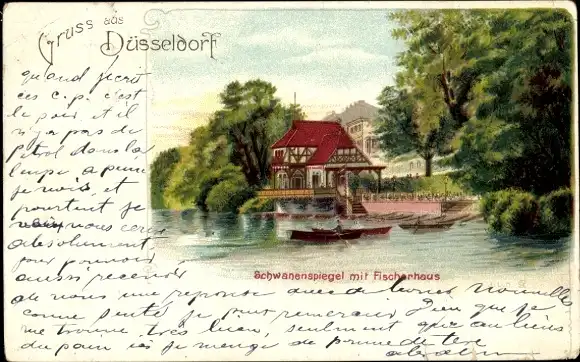 Gruss aus
Düsseldorf
quand j'ecris
ces c.p. c'est
le soir et il
n'y a pas de
petrol dans la
lampe a peine
je vois, et
pourtant je
vous
absolument
pour pouvoir
aussi recevoir
de vous une reponse avec de bonnes nouvelles
comme santé je puis remercier Dieu que je
me trouve très bien, seulement que au lieu
du pain ici je mange de pomme de tere
Schwanenspiegel mit Fischerhaus